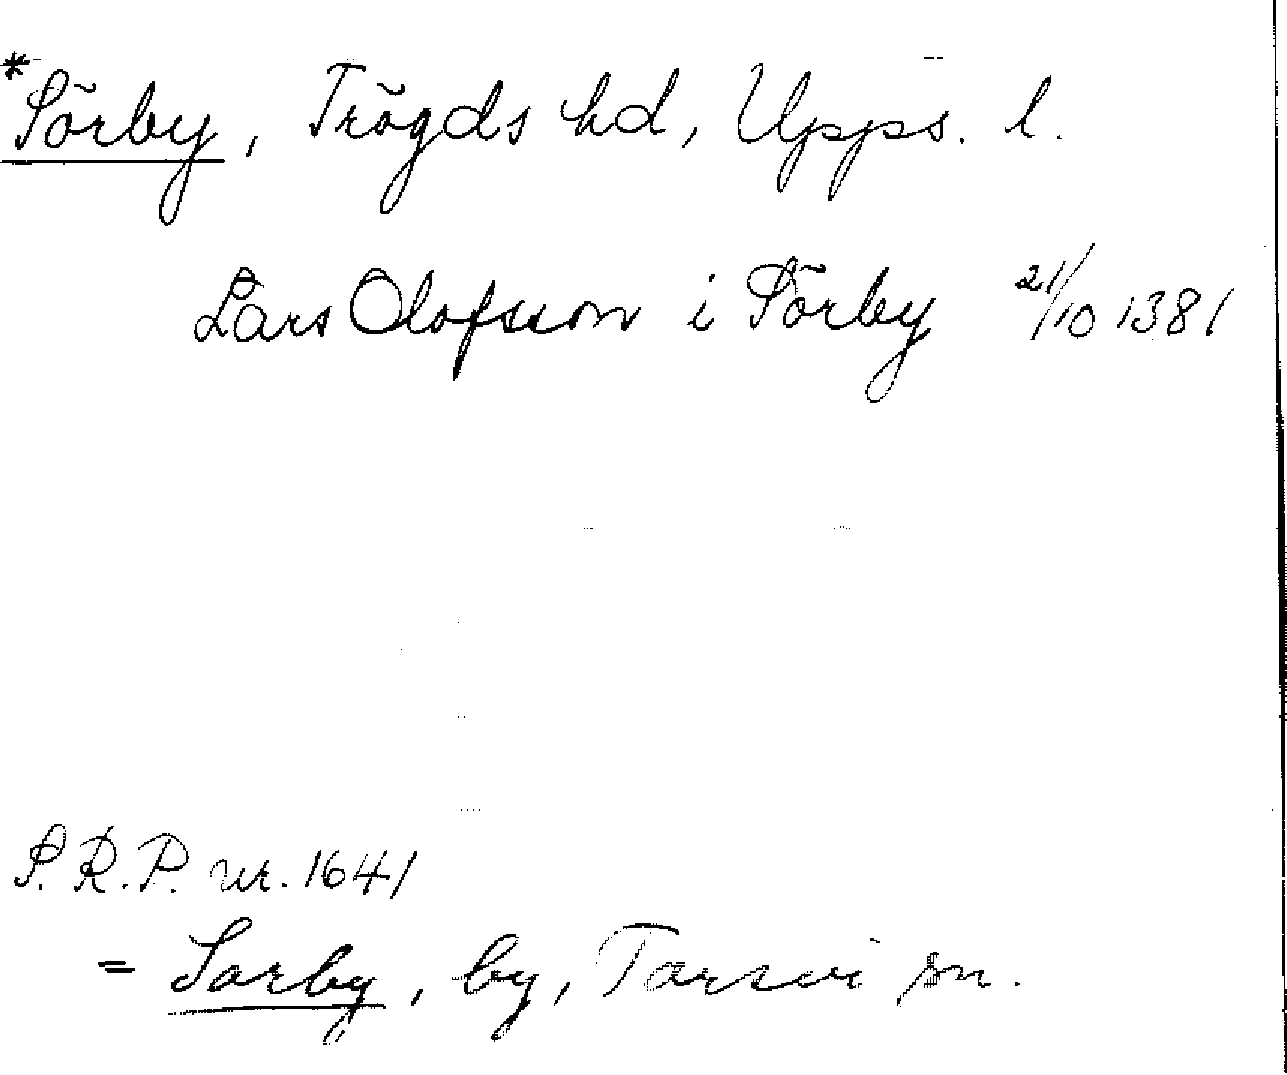 *Sörby, Trögds hd, Upps. l.
Lars Olofsson i Sörby 21/10 1381
S.R.P. nr. 1641
= Sarby, by, Torsvi sn.